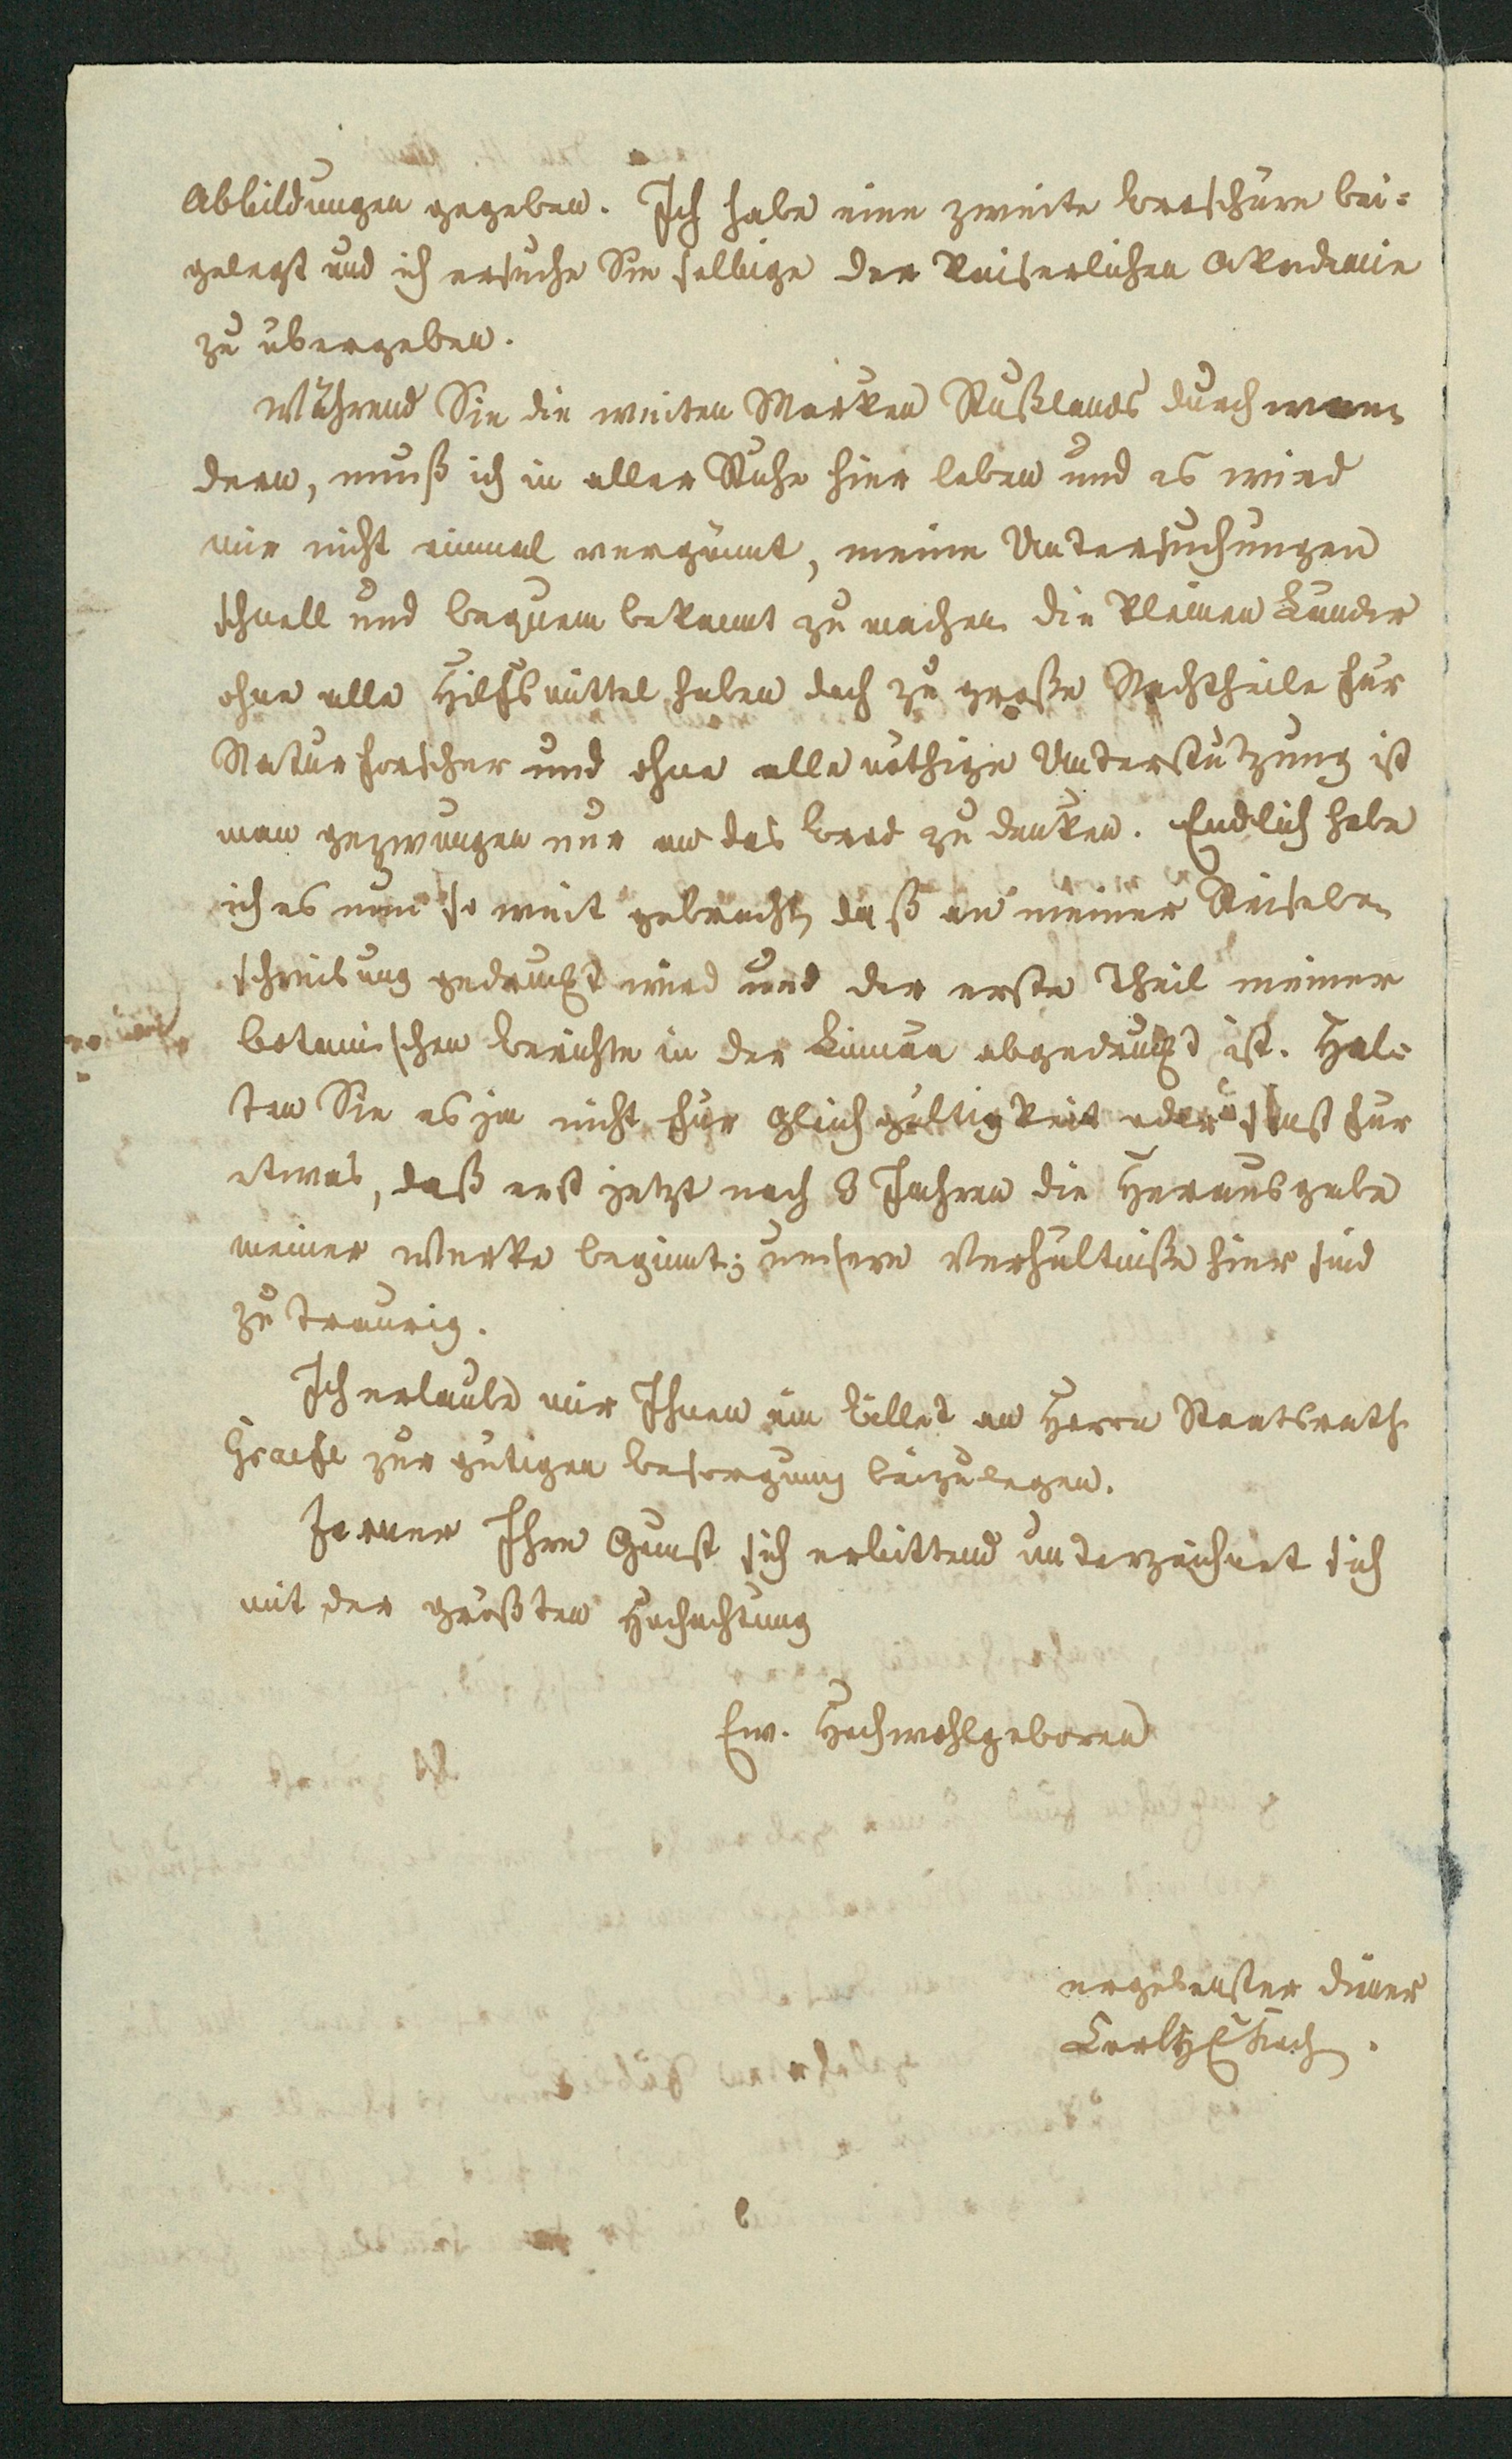 Abbildungen gegeben. Ich habe eine zweite Broschüre bei=
gelegt und ich ersuche Sie selbige der Kaiserlichen Akademie
zu übergeben.
Während Sie die weiten Marken Rußlands durchwan-
dern, muß ich in aller Ruhe hier leben und es wird
mir nicht einmal vergönnt, meine Untersuchungen
schnell und bequem bekannt zu machen. Die kleinen Länder
ohne alle Hilfsmittel haben doch zu große Nachtheile für
Naturforscher und ohne alle nöthige Unterstützung ist
man gezwungen nur an das Brod zu denken. Endlich habe
ich es nun so weit gebracht, daß an meiner Reisebe-
schreibung gedruckt wird und der erste Theil meiner
botanischen Berichte in der Linnäa abgedruckt ist. Hal-
ten Sie es ja nicht für Gleichgültigkeit oder sonst für
etwas, daß erst jetzt nach 3 Jahren die Herausgabe
meiner Werke beginnt; unsere Verhältniße hier sind
zu traurig.
Ich erlaube mir Ihnen ein Billet an Herrn Staatsrath
Graefe zur gütigen Besorgung beizulegen.
Ferner Ihre Gunst sich erbittend unterzeichnet sich
mit der größten Hochachtung
Ew. Hochwohlgeboren
ergebenster Diener
Carl Koch.